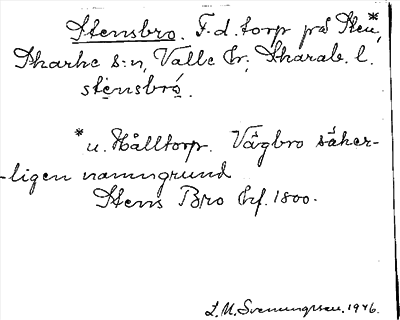 Stensbro. F.d. torp på Sten*,
Skarke s:n, Valle hr; Skarab. l.
stensbró.
*u. Hålltorp. Vägbro säker-
ligen namngrund
Stens Bro hf. 1800.
L.M. Svenungsson. 1946.